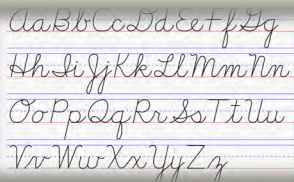 AaBbCcDdEeFfGg
HhIiJjKkLlMmNn
OoPpQqRrSsTtUu
VvWwXxYyZz